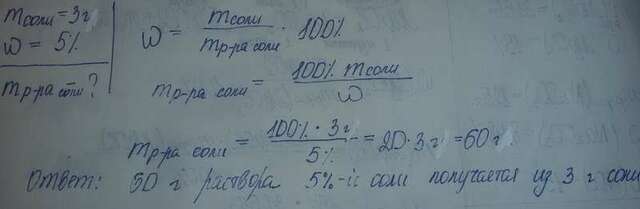 m соли = 3 г
ω = 5%
m р-ра соли?
ω = m соли / m р-ра соли · 100%
m р-ра соли = 100% m соли / ω
m р-ра соли = 100% · 3 г / 5% = 20 · 3 г = 60 г
Ответ: 60 г раствора 5%-й соли получается из 3 г соли